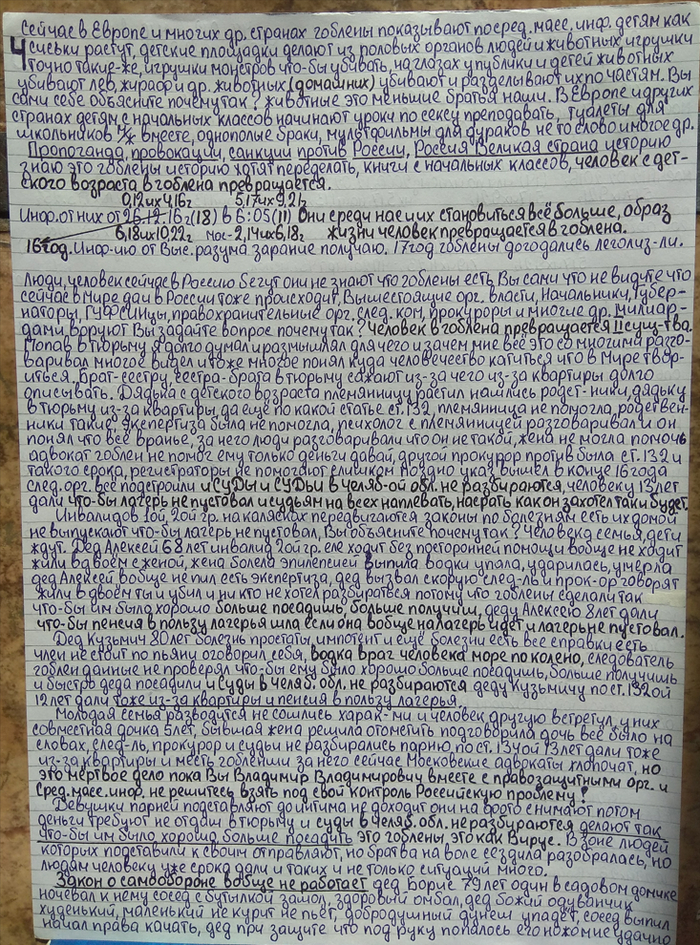 Сейчас в Европе и многих др. странах гоблены показывают посред. масс. инф. детям как
4 сиськи растут, детские площадки делают из половых органов людей и животных игрушки
точно такие-же, игрушки монстров что-бы убивать, на глазах у публики и детей животных
убивают лев, жираф и др. животных (домашних) убивают и разделывают их по частям. Вы
сами себе объясните почему так? животные это меньшие братья наши. В Европе и других
странах детям с начальных классов начинают уроки по сексу преподавать, туалеты для
школьников м/ж вместе, однополые браки, мультфильмы для дураков не то слово и многое др.
Пропоганда, провокации, санкции против России, Россия Великая страна историю
знаю это гоблены историю хотят переделать, книги с начальных классов, человек с дет-
ского возраста в гоблена превращается.
0,12их4,16г 5,17их9,21г
Инф. от них от 26.12.16г(18) в 6:05(11) Они среди нас и их становиться всё больше, образ
6,18их10,22г мос-2,14их6,18г жизни человек превращается в гоблена.
16год. Инф-ию от Выс. разума зарание получаю. 17год гоблены догодались леголиз-ли.
Люди, человек сейчас в Россию бегут они не знают что гоблены есть, Вы сами что не видите что
сейчас в Мире да и в России тоже происходит, Вышестоящие орг. власти, Начальники, Губер-
наторы, ГУФСИНцы, правохранительные орг. след. ком, прокуроры и многие др. милиар-
дами воруют Вы задайте вопрос почему так? Человек в гоблена превращается II сущ-тва.
Попав в тюрьму я долго думал и размышлял для чего и зачем мне всё это со многими разго-
варивал многое видел и тоже многое понял куда человечество катиться и то в Мире твор-
иться. Брат-сестру, сестра-брата в тюрьму сажают из-за чего из-за квартиры долго
описывать. Дядька с детского возраста племянницу растил нашлись родст-ники, дядьку
в тюрьму из-за квартиры, да ещё по какой статье ст. 132, племянница не помогла, родствен-
ники такие, экспертиза была не помогла, психолог с племянницей разговаривал и он
понял что всё вранье, за него люди разговаривали что он не такой, жена не могла помочь
адвокат гоблен не помог ему только деньги давай, другой прокурор против была ст. 132 и
такого срока, регистраторы не помогают слишком поздно указ вышел в конце 16года
след. орг. все подстроили и СУДы и СУДьи в Челяб-ой обл. не разбираются, человеку 13 лет
дали что-бы лагерь не пустовал и судьям на всех наплевать, насрать как он захотел так и будет.
Инвалидов 1ой, 2ой гр. на калясках передвигаются законы по болезням есть их домой
не выпускают что-бы лагерь не пустовал, Вы объясните почему так? Человека семья, дети
ждут. Дед Алексей 68 лет инвалид 2ой гр. еле ходит без посторонней помощи вообще не ходит
жили в двоём с женой, жена болела эпилепсией выпила водки упала, ударилась, умерла
дед Алексей вообще не пил есть экспертиза, дед вызвал скорую след-ль и прок-ор говорят
жили в двоём ты и убил и ни кто не хотел разбираться потому что гоблены сделали так
что-бы им было хорошо больше посадишь, больше получиш, деду Алексею 8лет дали
что-бы пенсия в пользу лагерья шла если она вобще на лагерь идёт и лагерь не пустовал.
Дед Кузьмич 80лет болезнь простаты, импотент и ещё болезни есть все справки есть
член не стоит по пьяни оговорил себя, водка враг человека море по колено, следователь
гоблен данные не проверял что-бы ему было хорошо больше посадишь, больше получишь
и быстро деда посадили и Суды в Челяб. обл. не разбираются деду Кузьмичу по ст. 132ой
12 лет дали тоже из-за квартиры и пенсия в пользу лагеря.
Молодая семья разводится не сошлись харак-ми и человек другую встретил, у них
совместная дочка 5лет, бывшая жена решила отомстить подговорила дочь всё было на
словах, след-ль, прокурор и судьи не разбирались парню по ст. 13 13лет дали тоже
из-за квартиры и месть гобленши за него сейчас Московские адвокаты хлопочат, но
это мёртвое дело пока Вы Владимир Владимирович вместе с правозащитными орг. и
Сред. масс. инф. не решитесь взять под свой контроль Российскую проблему!
Девушки парней подставляют до интима не доходит они на фото снимают потом
деньги требуют не отдаш в тюрьму и суды в Челяб. обл. не разбираются делают так
что-бы им было хорошо больше посадить это гоблены, это как Вирус. В зоне людей
которых подставили к своим отправляют, но братва на воле сездила разобралась, но
людям человеку уже срока дали и таких и не только ситуаций много.
Закон о самообороне вобще не работает дед Борис 79 лет один в садовом домике
ночевал к нему сосед с бутылкой зашол, здоровый омбал, дед божий одуванчик
худенький, маленький не курит не пьёт, добродушный дунеш упадёт, сосед выпил
начал права качать, дед при защите что под руку попалось его ножом неудачно